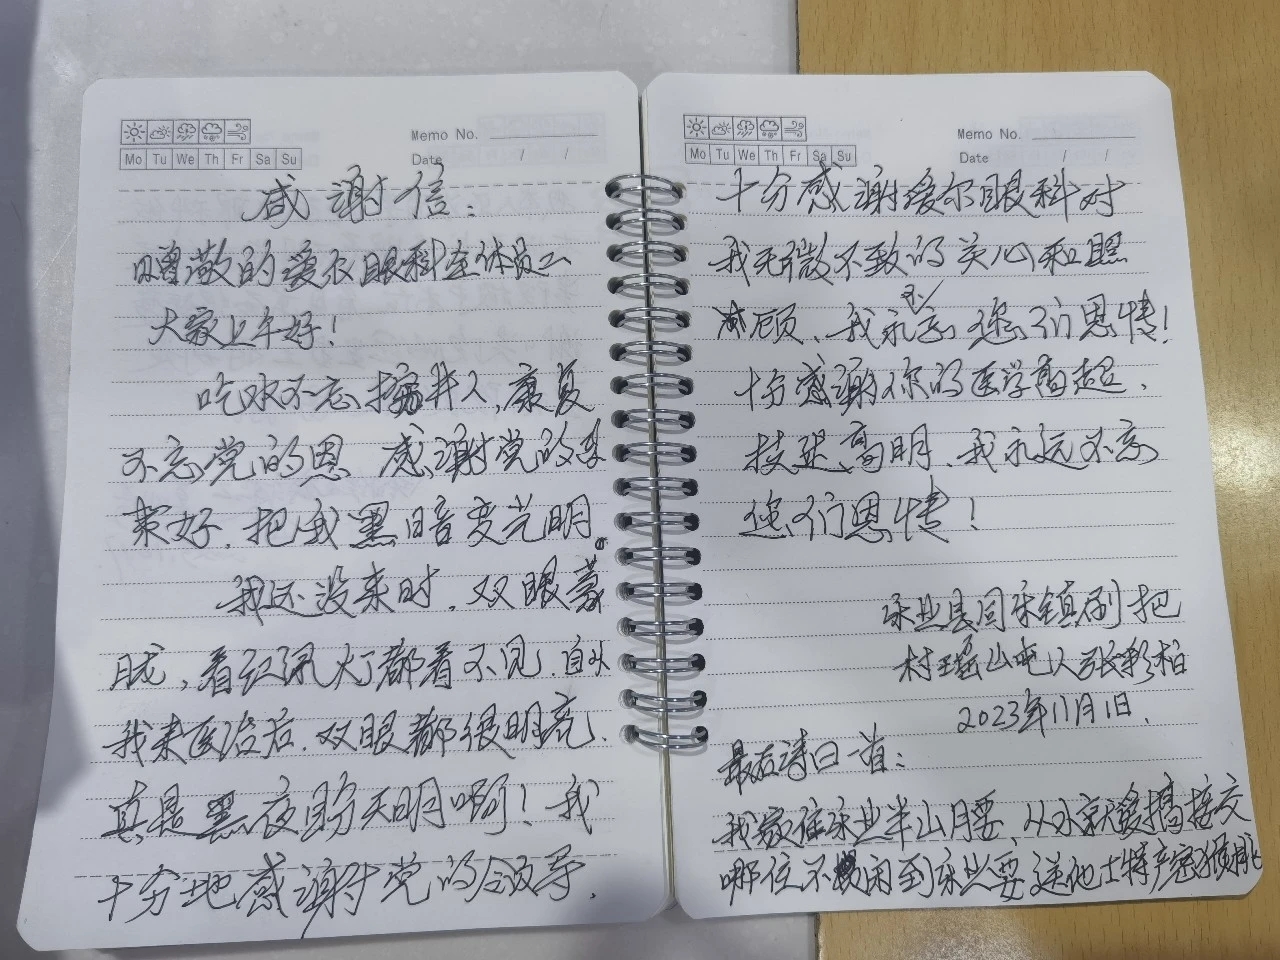 Memo No.
Mo Tu We Th Fr Sa Su
Date / /
感谢信：
尊敬的爱尔眼科全体员工
大家上午好！
吃水不忘挖井人，康复
不忘党的恩 感谢党的政
策好，把我黑暗变光明。
我还没来时，双眼蒙
胧，看红讯灯都看不见，自从
我来医治后，双眼都很明亮，
真是黑夜盼天明啊！我
十分地感谢党的领导，
Memo No.
Mo Tu We Th Fr Sa Su
Date / /
十分感谢爱尔眼科对
我无微不致的关心和照
顾、我永忘您们恩情！
十分感谢你的医学高超，
技述高明、我永远不忘
您们恩情！
乐业县同乐镇刷把
村瑶山屯人张彩柏
2023年11月1日，
最后诗曰一首：
我家住乐业半山腰，从小就爱搞接交
哪位不闲到乐业要送他土特产猕猴桃